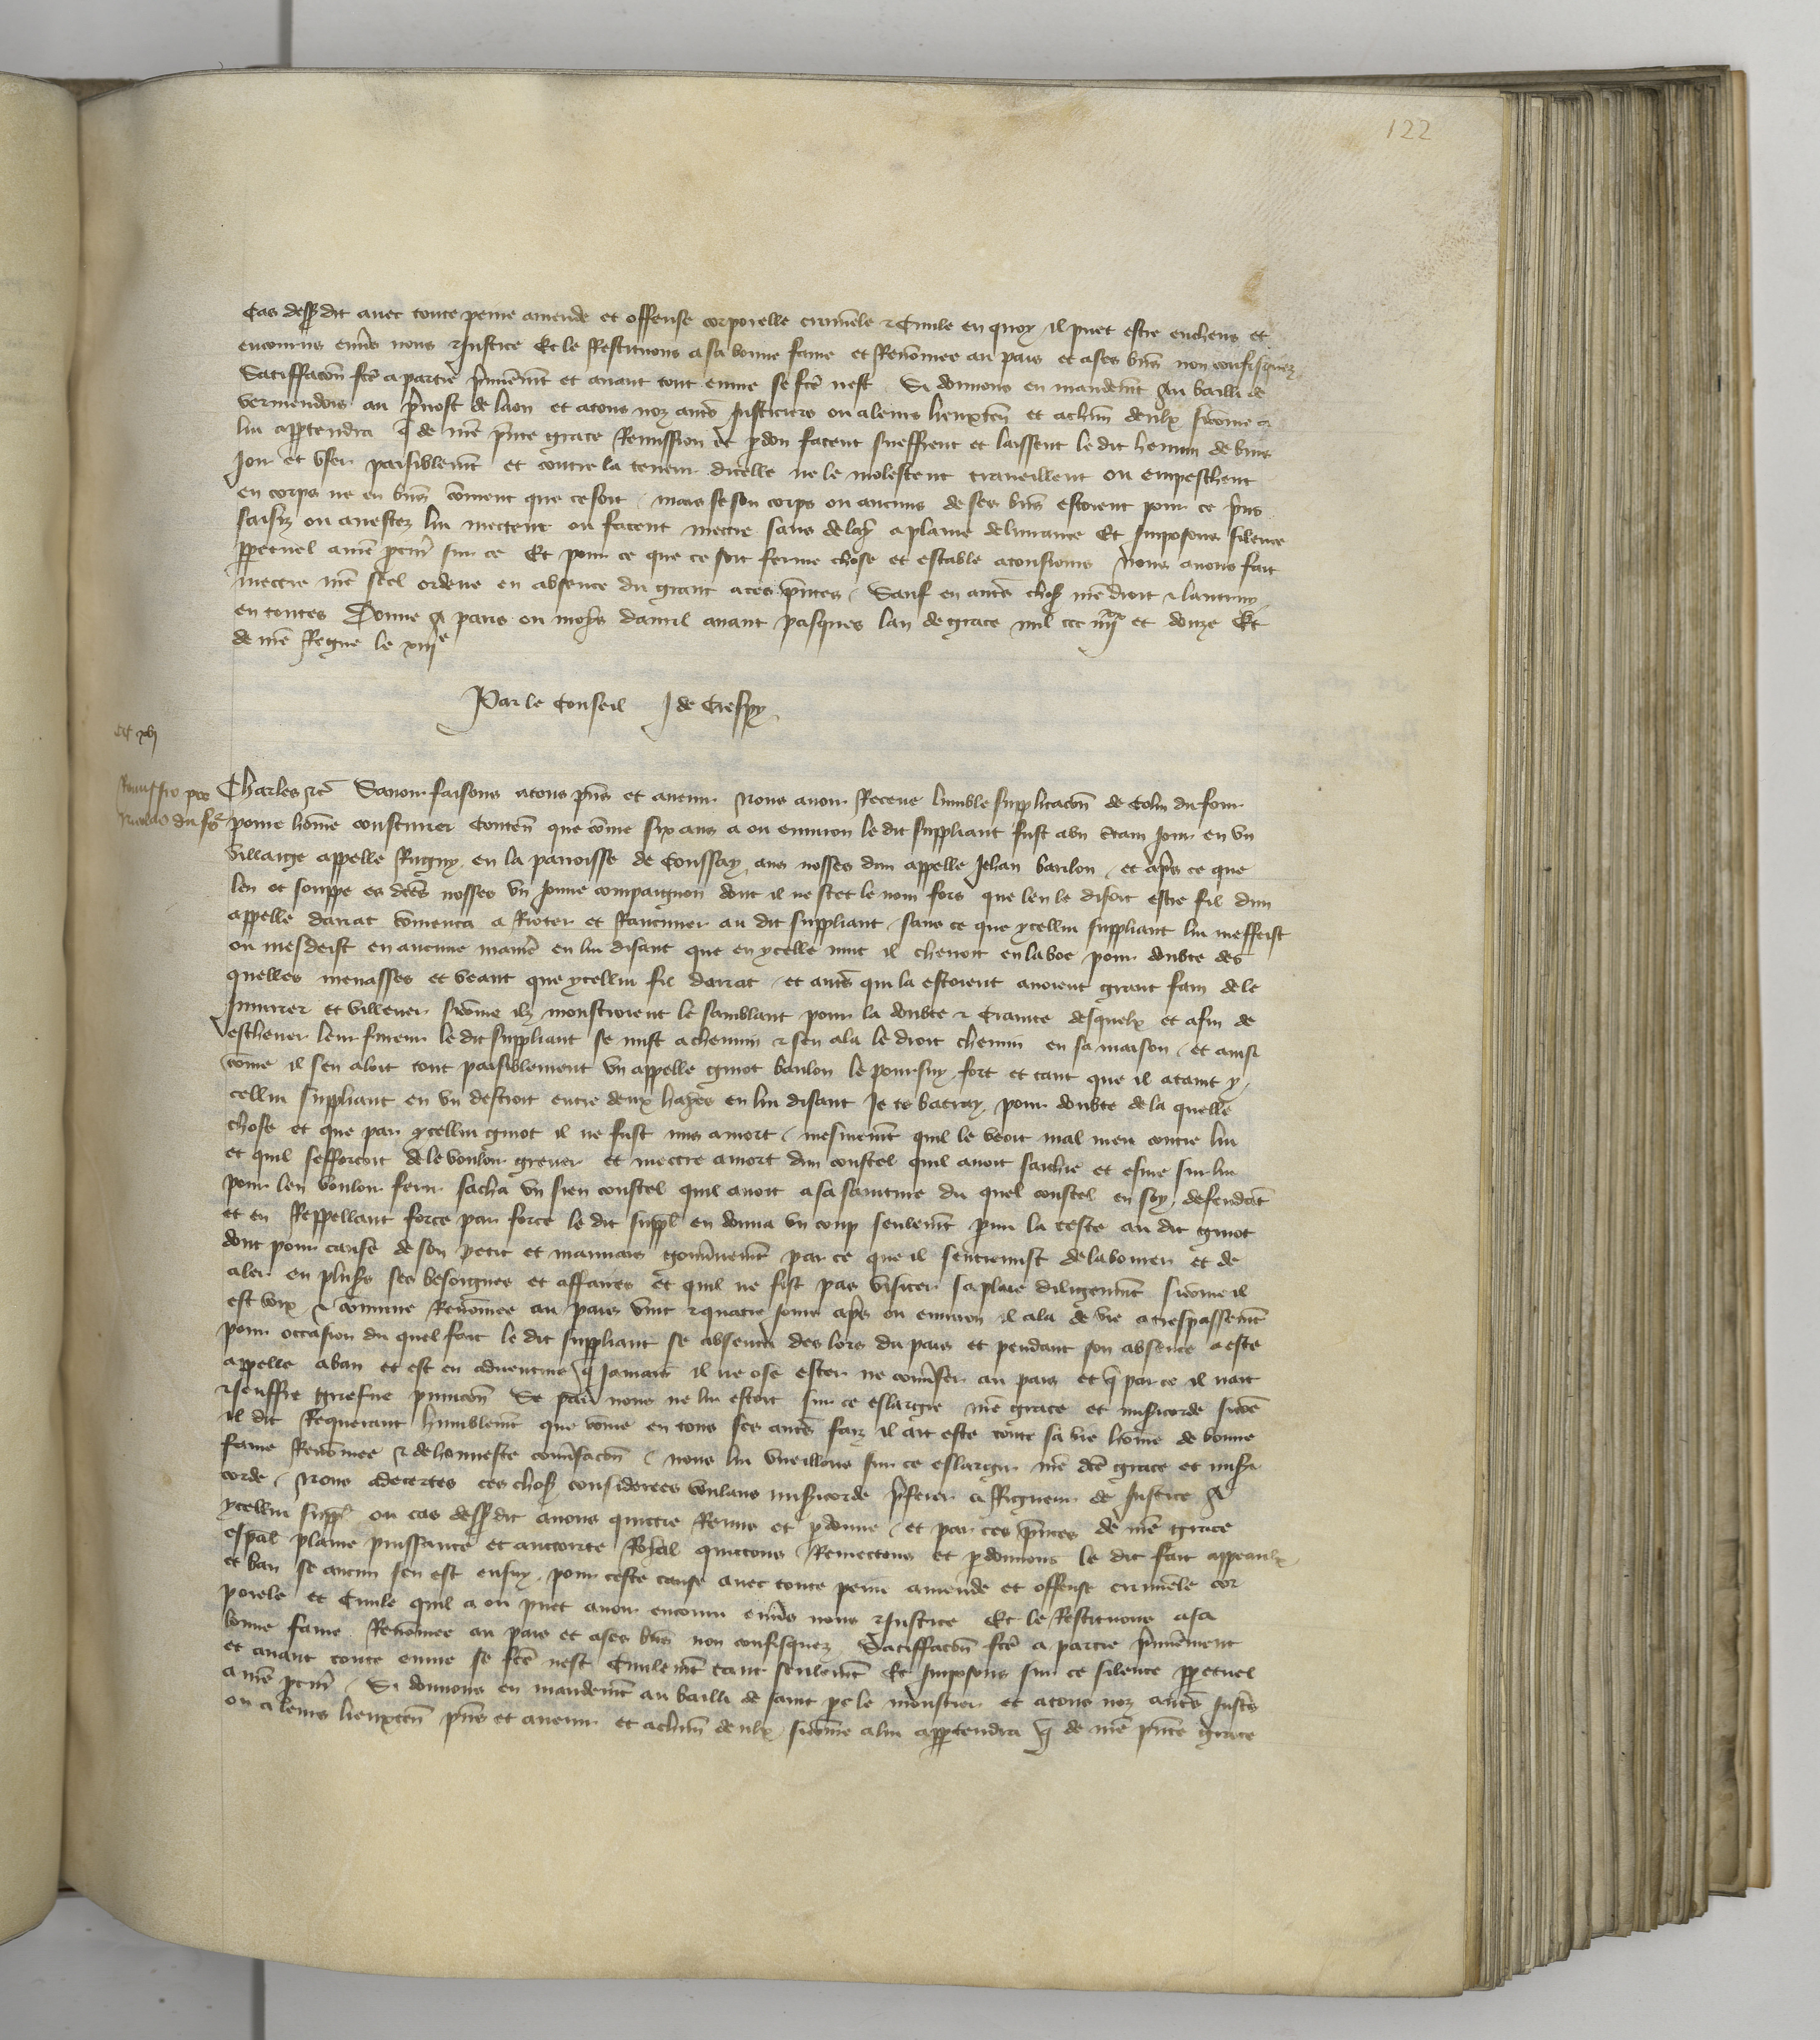 122
Cas dessusdit avec toute peine amende et offense corporelle criminele & Civile en quoy il puet estre encheus et
encourus envers nous & Justice Et le Restituons a sa bonne fame et Renommee au pais et a ses biens non confisquez
Satisfaccion fcte a partie premierement et avant tout euvre se fcte nest Si donnons en mandement Au bailli de
vermendois au prevost de laon et a tous noz autres Justiciers ou a leurs lieuxten et a chun deulx sicomme a
lui appartendra q de nre pnte grace Remission et pdon facent sueffrent et laissent le dit
Joir et user paisiblement et contre la teneur dicelle ne le molestent traveillent ou empeschent
en corps ne en biens coment que ce soit mais se son corps ou aucuns de ses biens estoient pour ce prins
saisiz ou arrestez lui mectent ou facent mectre sans delay a plaine delivrance Et Imposons silence
ppetuel a nre pcur sur ce Et pour ce que ce soit ferme chose et estable a tousiours Nous avons fait
mectre nre scel ordene en absence du grant a ces pntes Sauf en autres choses nre droit & lautruy
en toutes Donne A paris ou mois davril avant pasques lan de grace mil ccc iiiixx et douze Et
de nre Regne le xiiie
Par le Conseil J de Crespy
Remissio pro
Charles &c Savoir faisons a tous pns et avenir Nous avoir Receue lumble supplicacion de Colin du four
povre homme cousturier Conten que comme six ans a ou environ le dit suppliant fust a un certain Jour en un
villaige appelle Rigny en la parroisse de Coussay aus nosses dun appelle Jehan baulon et apres ce que
len ot souppe es dctes nosses un Jeune compaignon dont il ne scet le nom fors que len le disoit estre fil dun
appelle darrat commenca a Rioter et Rancuner au dit suppliant sans ce que ycellui suppliant lui meffeist
ou mesdeist en aucune maniere en lui disant que en ycelle nuit il cherroit en la boe pour doubte des
quelles menasses et veant que ycellui fil darrat et autres qui la estoient avoient grant fain de le
Injurier et villener sicomme ilz monstroient le samblant pour la doubte & Crainte desquelx et afin de
eschever leur fureur le dit suppliant se mist a chemin & sen ala le droit chemin en sa maison et ainsi
comme il sen aloit tout paisiblement un appelle guiot baulon le poursuy fort et tant que il ataint y
cellui suppliant en un destroit entre deux hayes en lui disant Je te batray pour doubte de la quelle
chose et que par ycellui guiot il ne fust mis a mort mesmement quil le veoit mal meu contre lui
et quil sefforcoit de le vouloir grever et mectre a mort dun coustel quil avoit sachie et esme sur lui
pour len vouloir ferir sacha un sien coustel quil avoit a sa sainture du quel coustel en soy defendant
et en Reppellant force par force le dit suppl en donna un coup seulement parmi la teste au dit guiot
dont pour cause de son petit et mauvais gouvernement par ce que il sentremist de labourer et de
aler en plusrs ses besoignes et affaires et quil ne fist pas visiter sa plaie diligemment sicomme il
est voix & commune Renommee au pais vint & quatre jours apres ou environ il ala de vie a trespassement
pour occasion du quel fait le dit suppliant se absenta des lors du pais et pendant son absence a este
appelle a ban et est en adventure q Jamais il ne ose ester ne converser au pais et q par ce il nait
& seuffre griefve punicion Se par nous ne lui estoit sur ce eslargie nre grace et misericorde sicome
il dit Requerant humblement que comme en tous ses autres faiz il ait este toute sa vie homme de bonne
fame Renommee & de honneste conversacion nous lui vueillons sur ce eslargir nre dcte grace et miseri
corde Nous adecertes ces choses considerees voulans misericorde preferer a Rigueur de Justice A
ycellui suppl ou cas dessusdit avons quictie Remis et pdonne et par ces pntes de nre grace
especial plaine puissance et auctorite Royal quictons Remectons et pdonnons le dit fait appeaulx
et ban se aucun sen est ensuy pour ceste cause avec toute peine amende et offense criminele cor
porele et Civile quil a ou puet avoir encouru envers nous & Justice Et le Restituons a sa
bonne fame Renommee au pais et a ses biens non confisquez Satisfaccion fcte a partie premierement
et avant toute euvre se fcte nest Civilement tant seulement Et Imposons sur ce silence ppetuel
a nre pcur Si donnons en mandement au bailli de saint pe le moustier et a tous noz autres Justic
ou a leurs lieuxten pns et avenir et a chun deulx sicomme a lui appartendra q de nre pnte grace